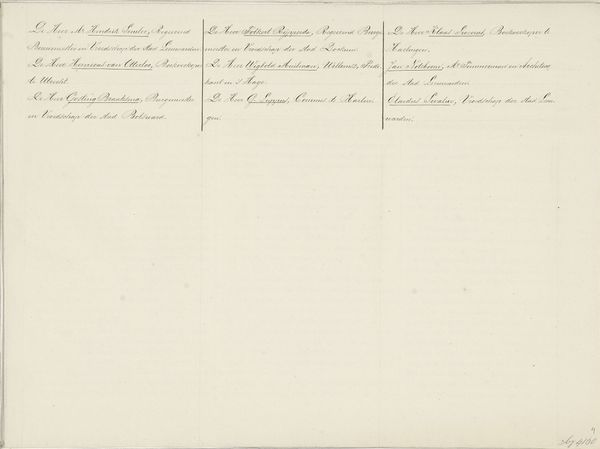 De Heer Mr. Hendrik Smeler, Regerend
Bouwmeester en Vroedschap der stad Leeuwarden
De Heer Henricus van Otterloo, Boekverkoper
te Utrecht.
De Heer Gosling Braaksma, Burgemeester
en Vroedschap der stad Bolsward.
De Heer Folkert Reynends, Regeerend Burge
meester en Vroedschap der stad
De Heer Wigbold Muilman, Willemsz,
kant in 's Hage.
De Heer G. Seppus, Commies te Harlin
gen.
De Heer Klaas Sevensz, Boekverkoper te
Harlingen.
Jan Noteboom, Mr. Timmerman en Architect
der stad Leeuwarden.
Olardus Sevalus, Vroedschap der stad Leeu
warden.